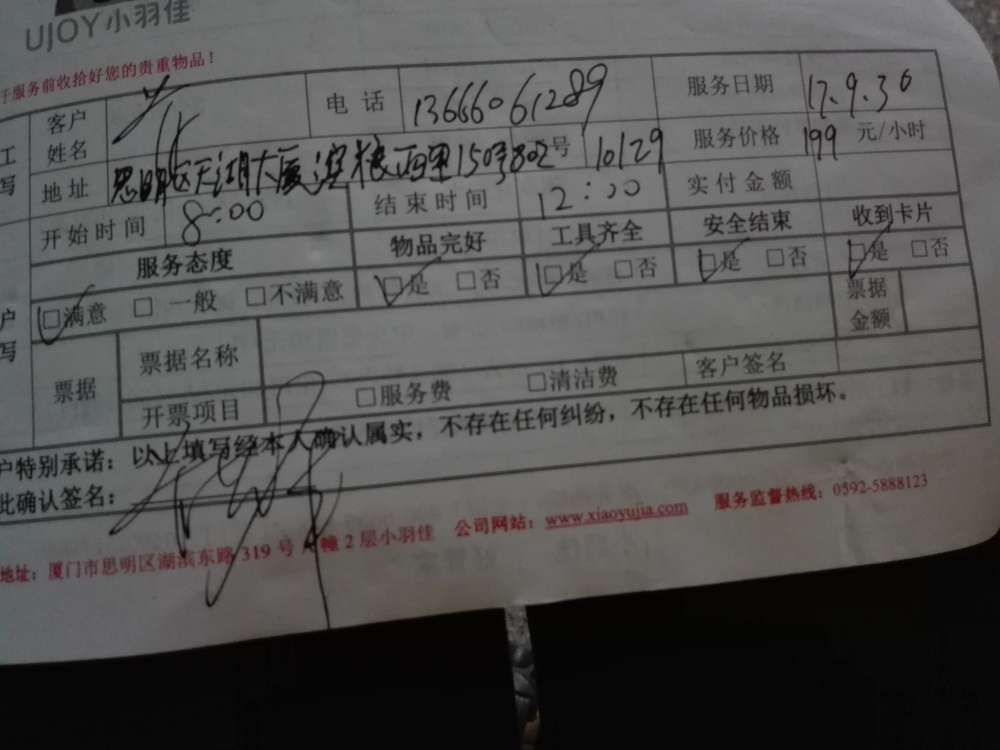 UJOY小羽佳
服务前收拾好您的贵重物品！
客户姓名 电话 13666061289 服务日期 17.9.30
地址 思明区天湖大厦 里150号802号 10129 服务价格 199 元/小时
开始时间 8:00 结束时间 12:00 实付金额
服务态度 物品完好 工具齐全 安全结束 收到卡片
☑满意 □一般 □不满意 ☑是 □否 ☑是 □否 ☑是 □否 ☑是 □否
票据 票据名称 票据金额
开票项目 □服务费 □清洁费 客户签名
户特别承诺：以上填写经本人确认属实，不存在任何纠纷，不存在任何物品损坏。
此确认签名：
地址：厦门市思明区湖滨东路 319 号 幢 2 层小羽佳 公司网站：www.xiaoyujia.com 服务监督热线：0592-5888123